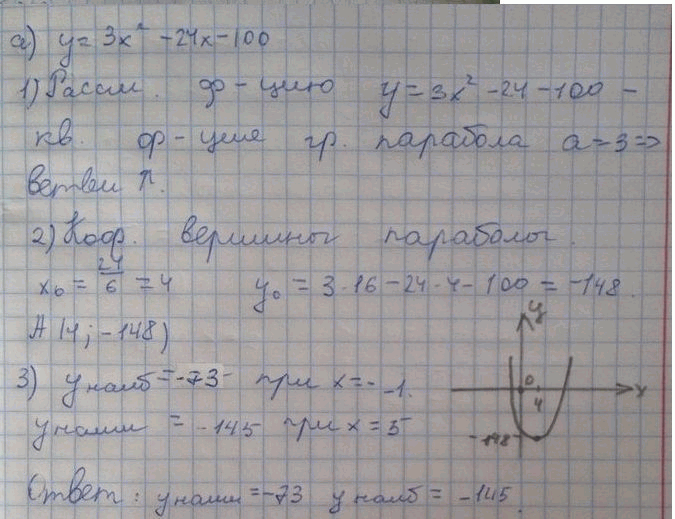 а) y = 3x² - 24x - 100
1) Рассм. ф-цию y = 3x² - 24 - 100 -
кв. ф-ция гр. парабола a = 3 =>
ветви ↑.
2) Коор. вершины параболы.
x₀ = 24/6 = 4 y₀ = 3·16 - 24·4 - 100 = -148.
A (4; -148)
3) y наиб = -73 при x = - -1.
y наим = -145 при x = 5
y
0
4
x
-148
Ответ: y наим = -73 y наиб = -145.